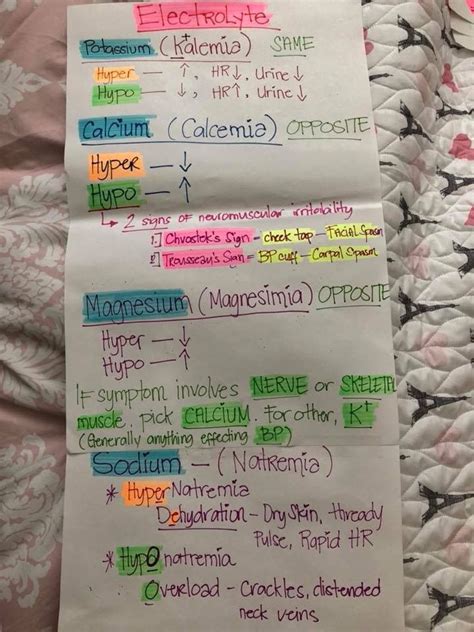 Electrolyte
Potassium (K+alemia) SAME
Hyper — ↑, HR↓, Urine↓
Hypo — ↓, HR↑, Urine↓
Calcium (Calcemia) OPPOSITE
Hyper — ↓
Hypo — ↑
↳ 2 signs of neuromuscular irritability
1.] Chvostek's Sign - cheek tap - Facial Spasm
2.] Trousseau's Sign = BP cuff - Carpal Spasm
Magnesium (Magnesimia) OPPOSITE
Hyper — ↓
Hypo — ↑
IF symptom involves NERVE or SKELETAL
muscle, pick CALCIUM. For other, K+
(Generally anything effecting BP)
Sodium — (Natremia)
* HyperNatremia
Dehydration - Dry Skin, thready
Pulse, Rapid HR
* HypOnatremia
Overload - Crackles, distended
neck veins